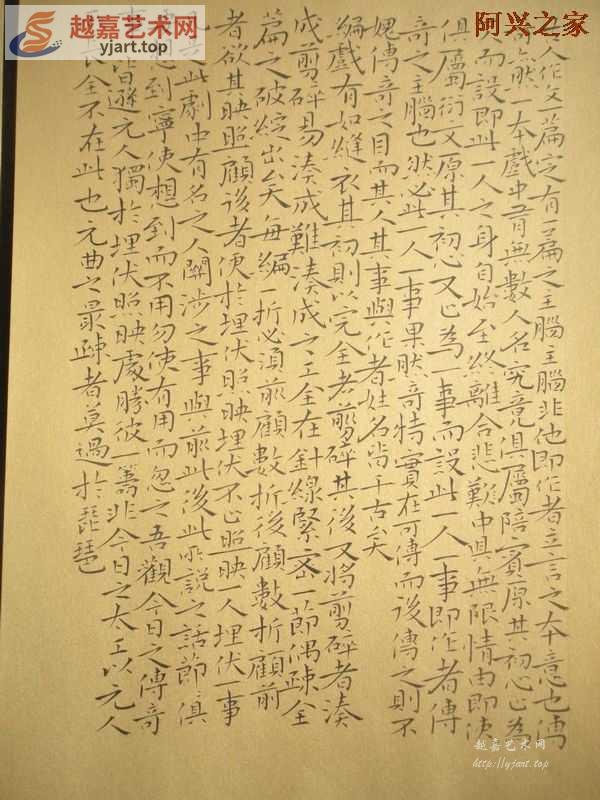 越嘉艺术网
yjart.top
阿兴之家
人作文一篇定有一篇之主腦主腦非他即作者立言之本意也傳
亦然一本戲中有無數人名究竟俱屬陪賓原其初心止為
人而設即此一人之身自始至終離合悲歡中具無限情由即演
俱屬衍文原其初心又止為一事而設此一人一事即作者傳
奇之主腦也然必此一人一事果然奇特實在可傳而後傳之則不
愧傳奇之目而其人其事與作者姓名皆千古矣
編戲有如縫衣其初則以完全者剪碎其後又將剪碎者湊
成剪碎易湊成難湊成之工全在針線緊密一節偶疎全
篇之破綻出矣每編一折必須前顧數折後顧數折顧前
者欲其映照顧後者便於埋伏照映埋伏不止照映一人埋伏一事
此劇中有名之人關涉之事與前此後此所說之話節俱
想到寧使想到而不用勿使有用而忽之吾觀今日之傳奇
皆遜元人獨於埋伏照映處勝彼一籌非今日之太工以元人
長全不在此也元曲之最疎者莫過於琵琶
越嘉艺术网
http://yjart.top